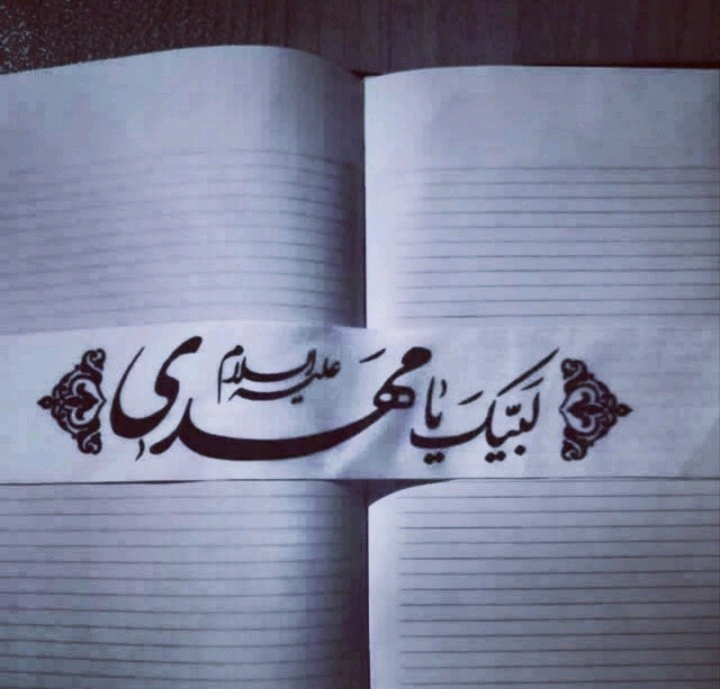 لَبَّیکَ یا مَهدی علیه السلام